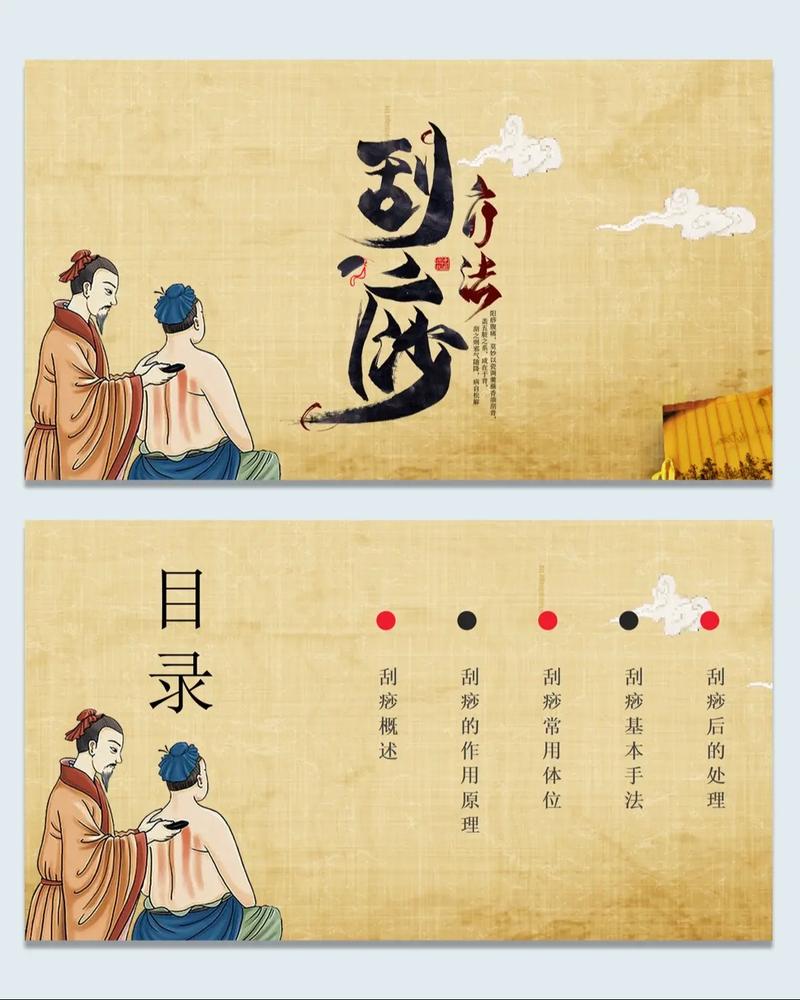 刮痧
疗法
阳痧腹痛，莫妙以瓷调羹蘸香油刮背，
盖五脏之系，咸在于背，
刮之则邪气随降，病自松解
目录
刮痧概述
刮痧的作用原理
刮痧常用体位
刮痧基本手法
刮痧后的处理